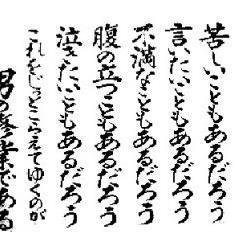 苦しいこともあるだろう
言いたいこともあるだろう
不満なこともあるだろう
腹の立つこともあるだろう
泣きたいこともあるだろう
これをじっとこらえてゆくのが
男の修業である